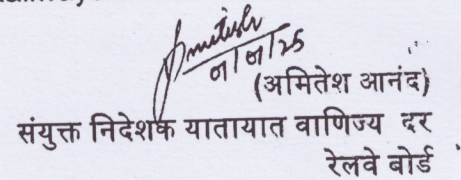 Amitesh
01/01/25
(अमितेश आनंद)
संयुक्त निदेशक यातायात वाणिज्य दर
रेलवे बोर्ड